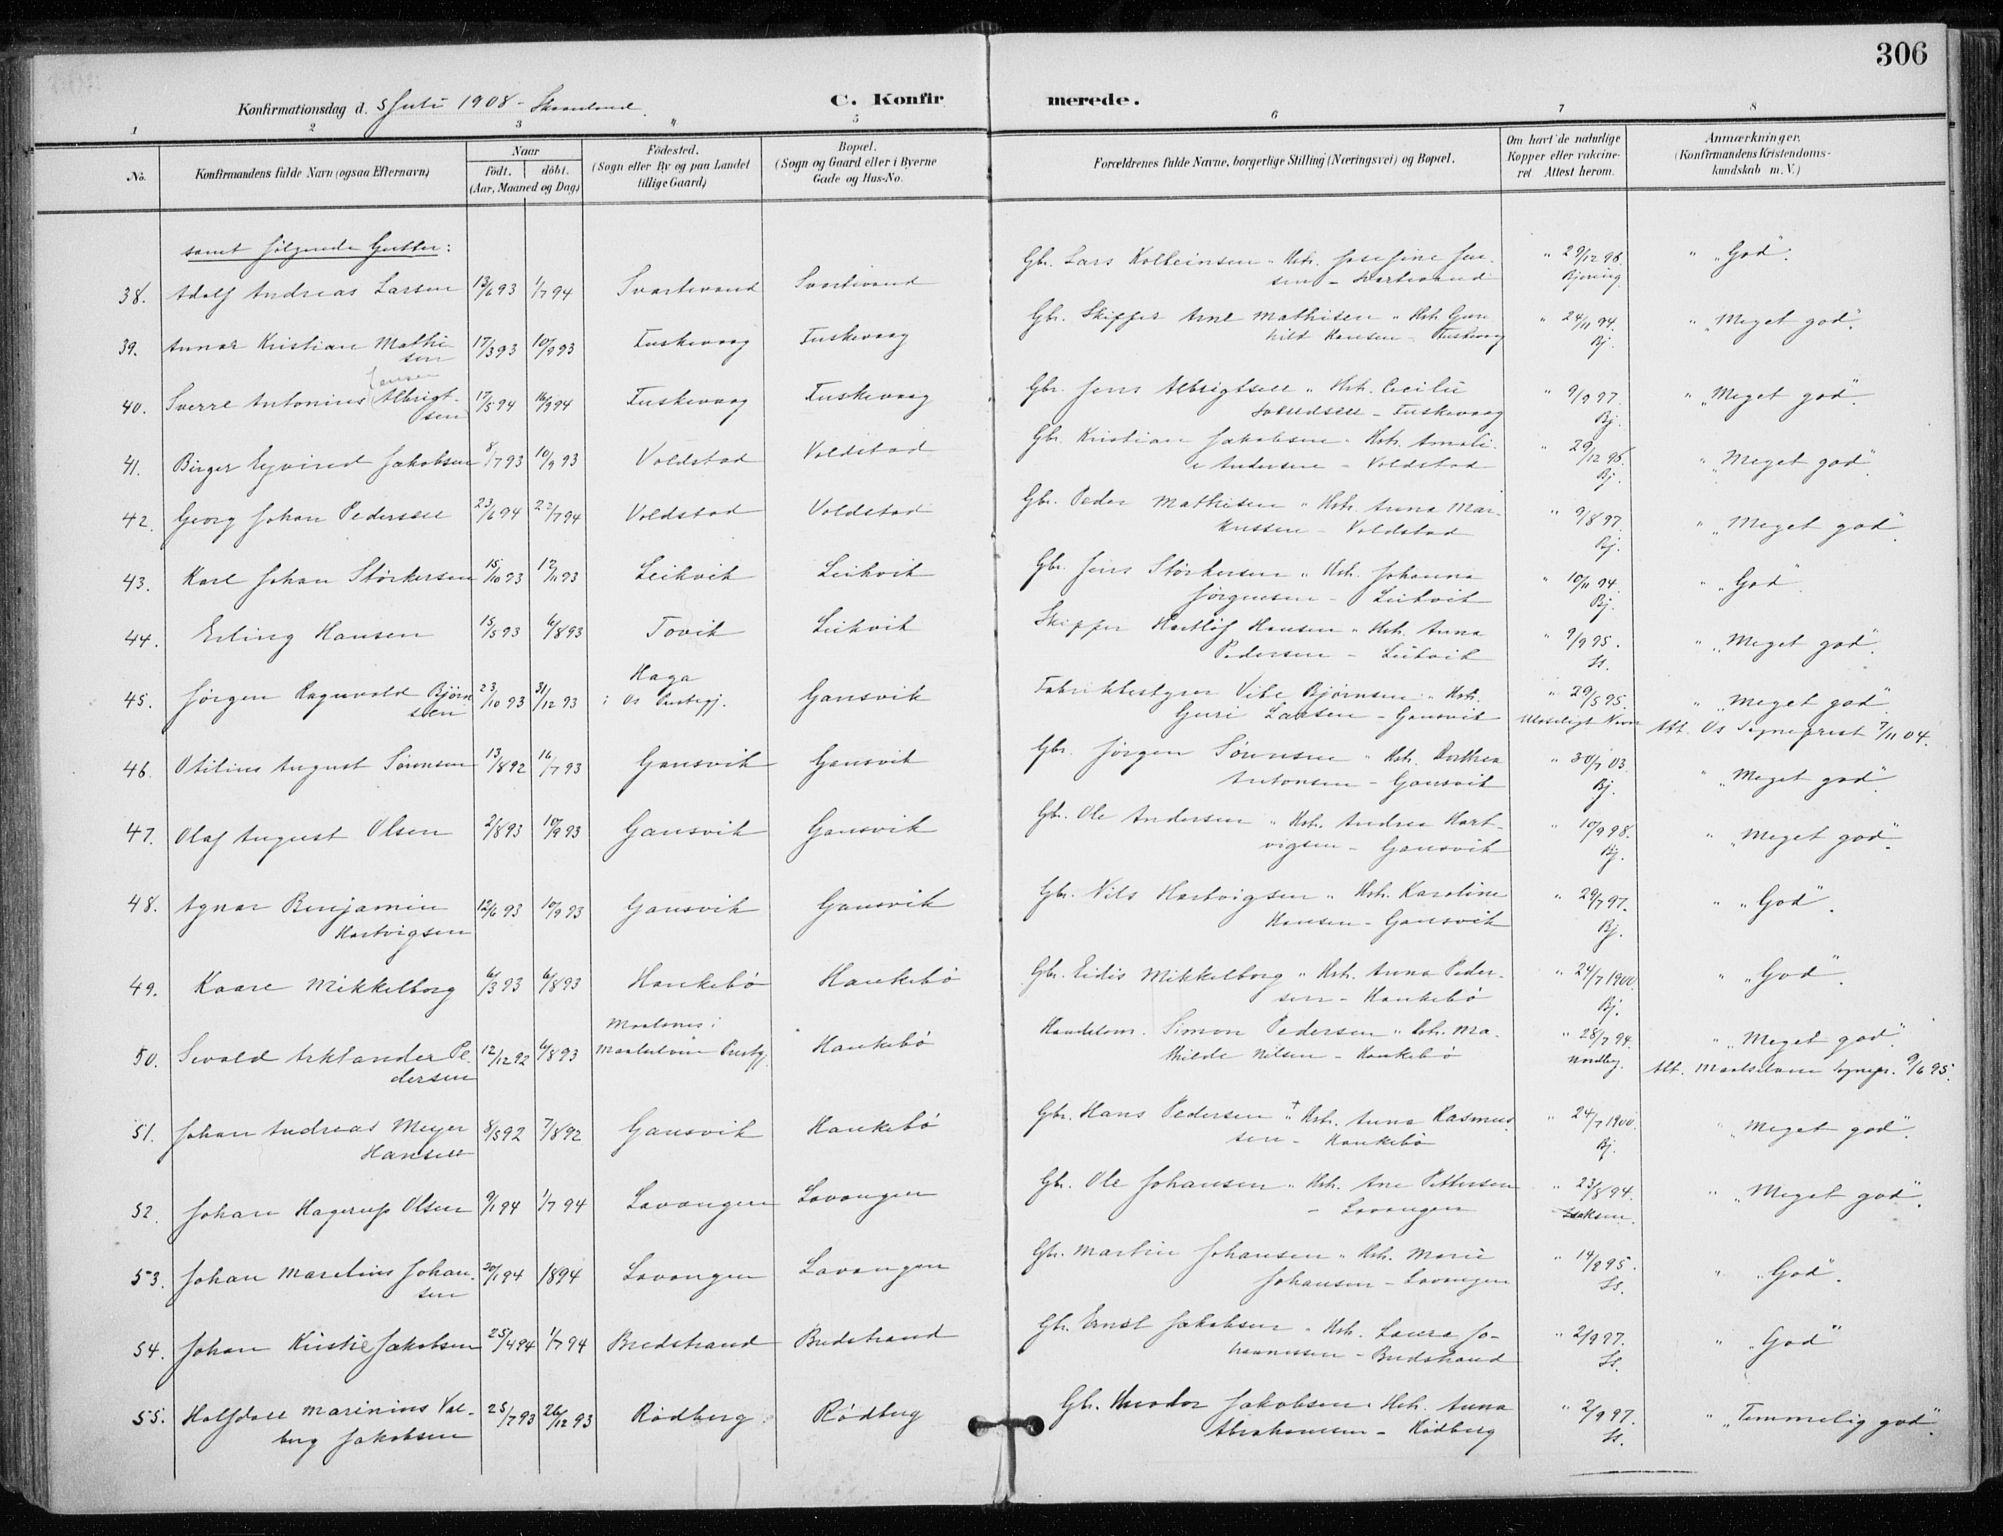 306
Konfirmationsdag d. 5 Juli 1908 - Skaanland.
C. Konfirmerede.
1 2 3 " 5 6 7 8
No. Konfirmandens fulde Navn (ogsaa Efternavn) Naar født. døbt. (Aar, Maaned og Dag) Fødested. (Sogn eller By og paa Landet tillige Gaard) Bopæl. (Sogn og Gaard eller i Byerne Gade og Hus-No. Forældrenes fulde Navne, borgerlige Stilling (Næringsvei) og Bopæl. Om havt de naturlige Kopper eller vakcineret Attest herom. Anmærkninger. (Konfirmandens Kristendomskundskab m. V.)
samt følgende Gutter:
38. Adolf Andreas Larsen 13/6 93 1/7 94 Svartevand Svartevand Gbr. Lars Kolbeinsen " Hstr. Josefine Jensen - Svartevand " 29/12 96. Bjering. " "God".
39. Annar Kristian Mathisen 17/3 93 10/9 93 Fuskevaag Fuskevaag Gbr. Skipper Arne Mathisen " Hstr. Gunhild Hansen - Fuskevaag " 24/11 94. Bj. " "Meget god".
40. Sverre Antonius Jensen (Albrigtsen) 17/5 94 16/9 94 Fuskevaag Fuskevaag Gbr. Jens Albrigtsen " Hstr. Cecilie - Fuskevaag " 9/9 97. Bj. " "Meget god".
41. Birger Eyvind Jakobsen 8/7 93 10/9 93 Voldstad Voldstad Gbr. Kristian Jakobsen " Hstr. Amalie Andersen - Voldstad " 29/12 96. Bj. " "Meget god".
42. Georg Johan Pedersen 23/6 94 22/7 94 Voldstad Voldstad Gbr. Peder Mathisen " Hstr. Anna Markussen - Voldstad " 9/8 97. Bj. " "Meget god".
43. Karl Johan Størkersen 15/10 93 12/11 93 Leikvik Leikvik Gbr. Jens Størkersen " Hstr. Johanna Jørgensen - Leikvik " 10/11 94. Bj. " "God".
44. Erling Hansen 15/5 93 6/8 93 Tovik Leikvik Skipper Hartløf Hansen " Hstr. Anna Pedersen - Leikvik " 9/9 95. " "Meget god".
45. Jørgen Ragnvald Bjørnsen 23/10 93 31/12 93 Haga i Os Prestegj. Gansvik Fabrikbestyrer Vibe Bjørnsen " Hstr. Guri Larsen - Gansvik " 29/5 95. Ulæseligt Navn " "Meget god". Att. Os Sogneprest 7/11 04.
46. Otilius August Sørensen 13/8 92 16/7 93 Gansvik Gansvik Gbr. Jørgen Sørensen " Hstr. Dorthea Antonsen - Gansvik " 30/7 03. Bj. " "Meget god".
47. Olaf August Olsen 2/8 93 10/9 93 Gansvik Gansvik Gbr. Ole Andersen " Hstr. Andrea Hartvigsen - Gansvik " 10/9 98. Bj. " "Meget god".
48. Agnar Benjamin Hartvigsen 12/6 93 10/9 93 Gansvik Gansvik Gbr. Nils Hartvigsen " Hstr. Karoline Hansen - Gansvik " 29/7 97. Bj. " "God".
49. Kaare Mikkelborg 6/3 93 6/8 93 Haukebø Haukebø Gbr. Eidis Mikkelborg " Hstr. Anna Pedersen - Haukebø " 24/7 1900. Bj. " "God".
50. Sevald Arktander Pedersen 12/12 92 6/8 93 Maalsnes i Maalselven Prestgj. Haukebø Handelsm. Simon Pedersen " Hstr. Mathilde Nilsen - Haukebø " 28/7 94. Nordbey. " "Meget god". Att. Maalselvens Sognepr. 9/6 95.
51. Johan Andreas Meyer Hansen 8/5 92 7/8 92 Gansvik Haukebø Gbr. Hans Pedersen " † Hstr. Anna Rasmussen - Haukebø " 24/7 1900. Bj. " "Meget god".
52. Johan Hagerup Olsen 9/1 94 1/7 94 Lavangen Lavangen Gbr. Ole Johansen " Hstr. Ane Pettersen - Lavangen " 23/8 94. Isaksen. " "Meget god".
53. Johan Marelius Johansen 20/1 94 1894 Lavangen Lavangen Gbr. Martin Johansen " Hstr. Marie Johansen - Lavangen " 14/9 95. " "God".
54. Johan Kirstie Jakobsen 25/4 94 1/7 94 Bredstrand Bredstrand Gbr. Ernst Jakobsen " Hstr. Laura Johannessen - Bredstrand " 2/9 97. " "God"
55. Halfdan Marinius Valberg Jakobsen 25/7 93 26/12 93 Rødberg Rødberg Gbr. Theodor Jakobsen " Hstr. Anna Abrahamsen - Rødberg " 2/9 97. " "Temmelig god".